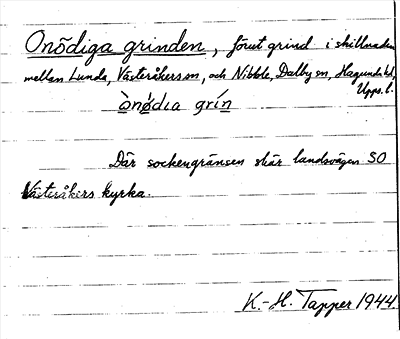 Onödiga grinden, förut grind i skillnaden
mellan Lunda, Västeråkers sn, och Nibble, Dalby sn, Hagunda hd,
Upps. l.
ònø̀dia grín
Där sockengränsen skär landsvägen SO
Västeråkers kyrka.
K.-H. Tapper 1944.